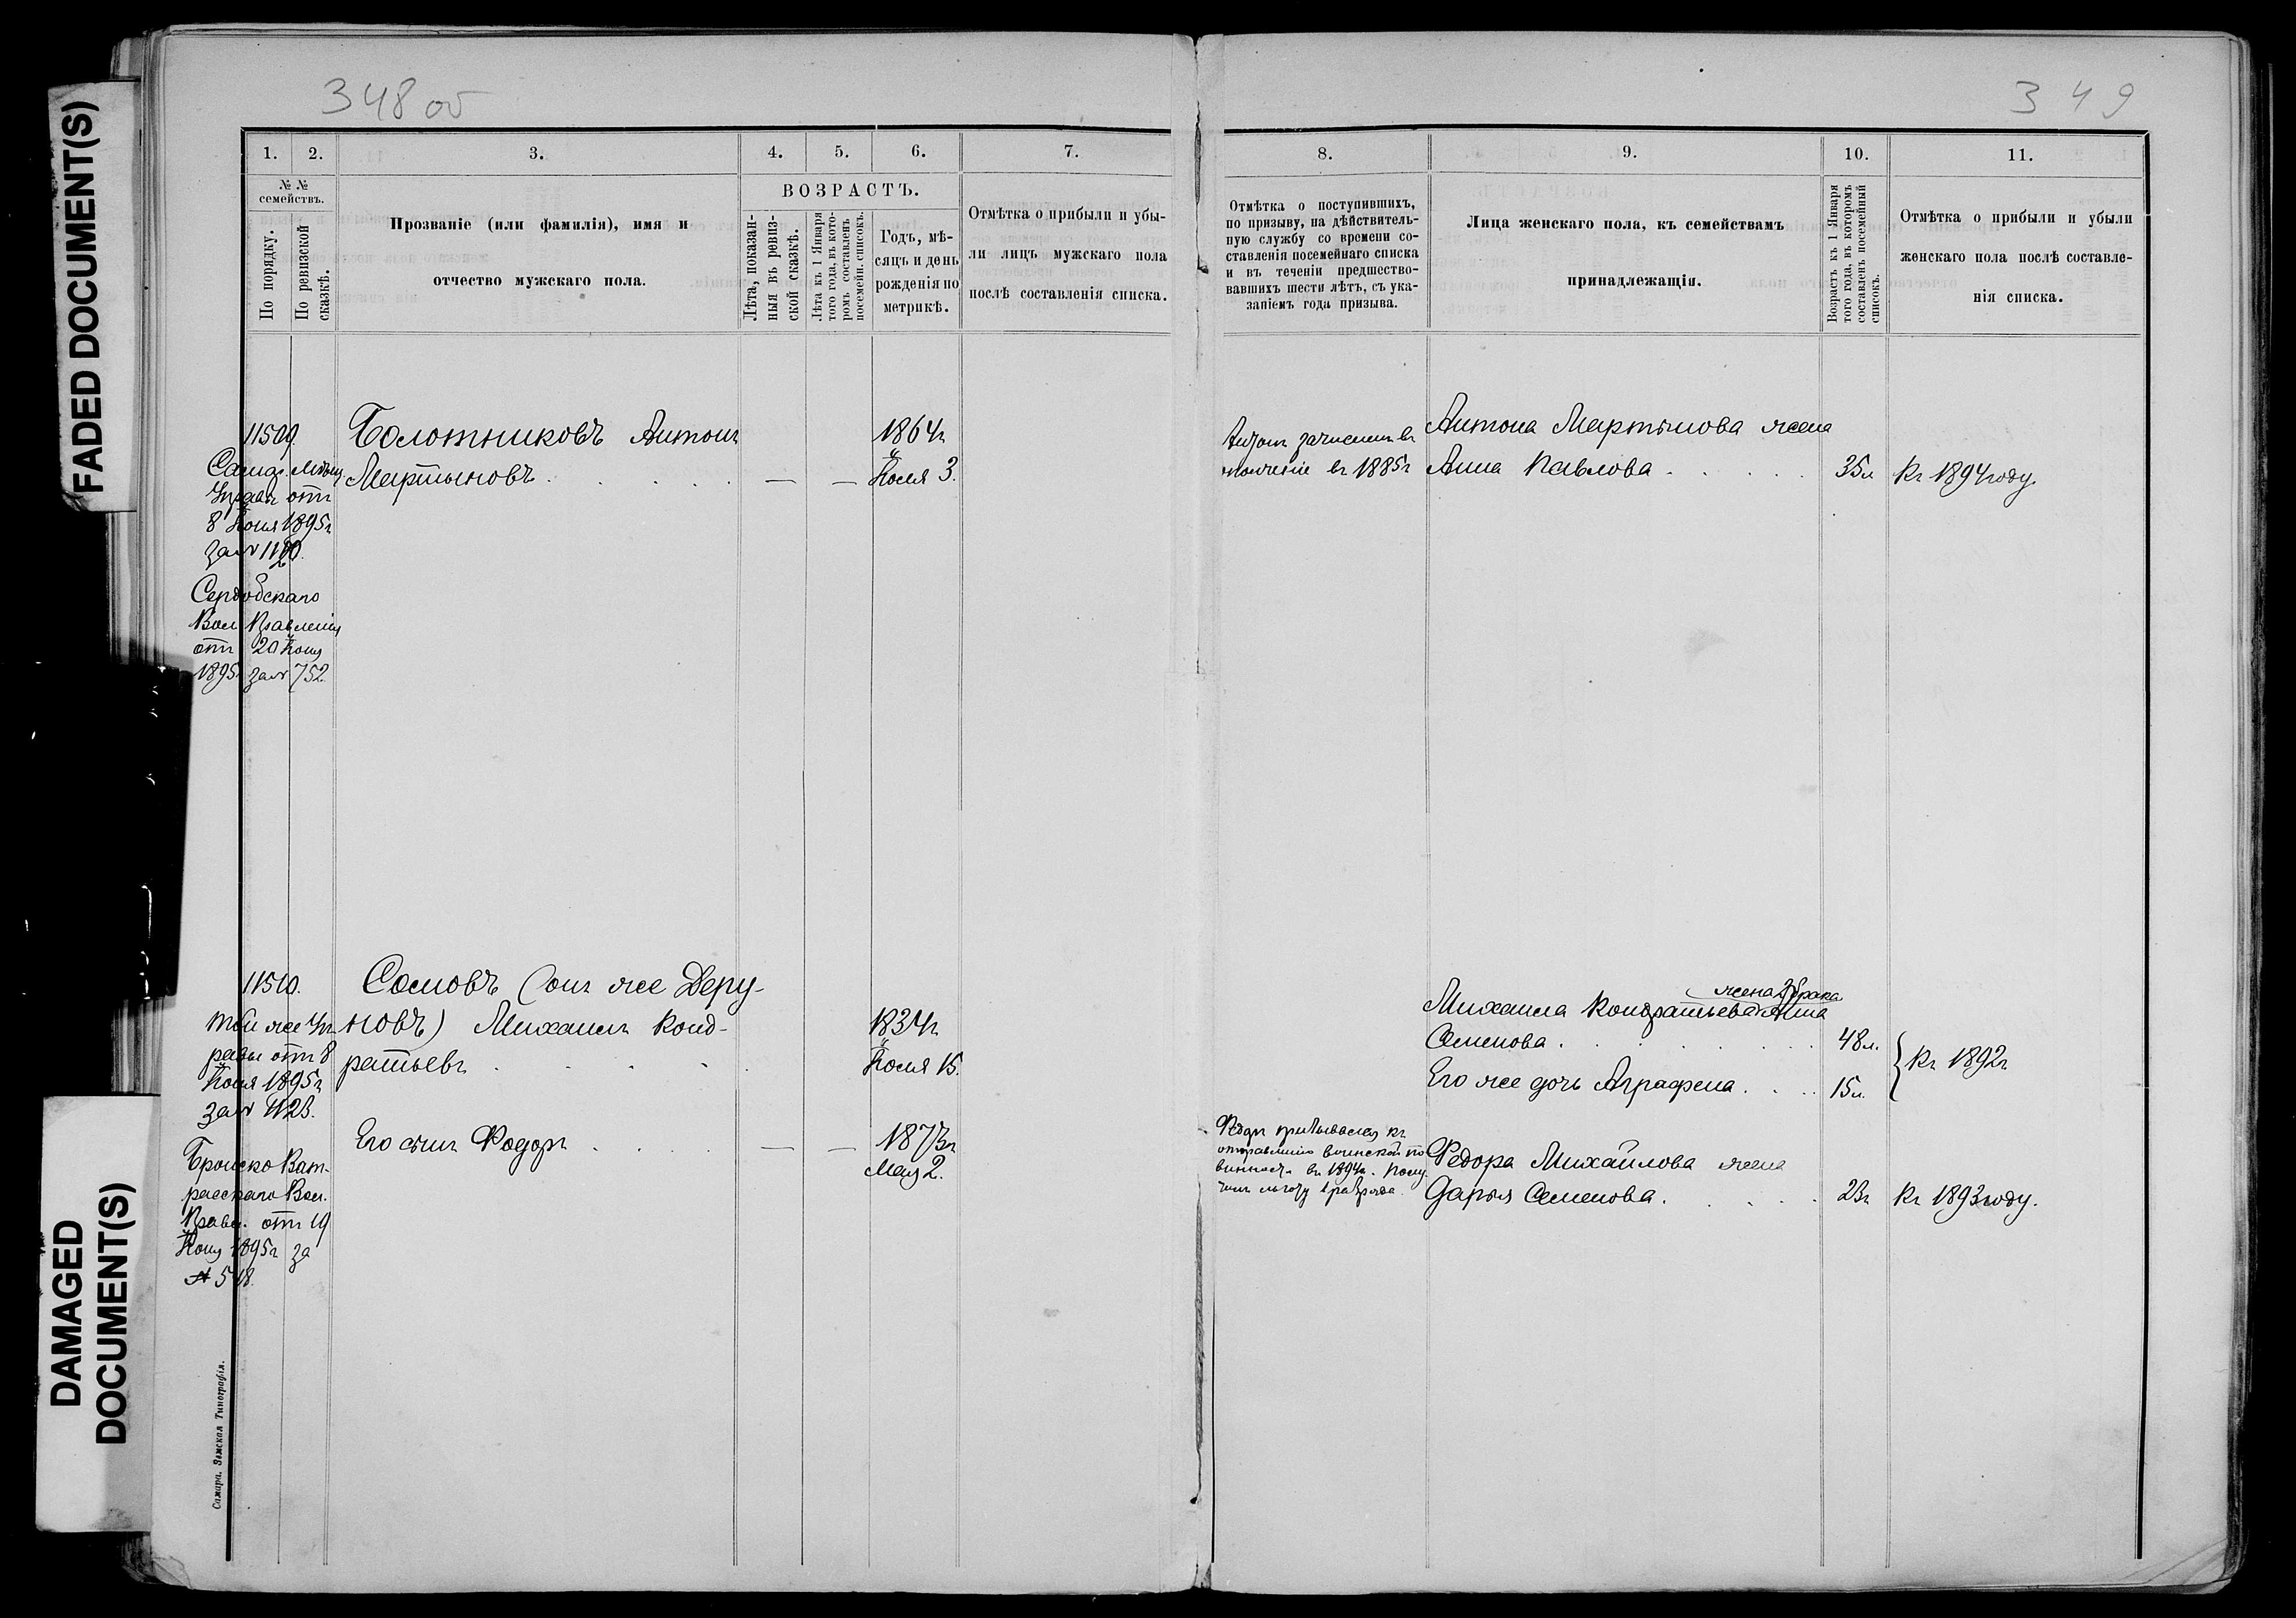 FADED DOCUMENT(S)
DAMAGED
DOCUMENT(S)
348 об
349
1.
2.
3.
4.
5.
6.
7.
№ №
семействъ.
По порядку.
По ревизской
сказкѣ.
Прозваніе (или фамилія), имя и
отчество мужскаго пола.
ВОЗРАСТЪ.
Лѣта, показан-
ныя въ ревиз-
ской сказкѣ.
Лѣта къ 1 Января
того года, въ кото-
ромъ составленъ
посемейн. списокъ.
Годъ, мѣ-
сяцъ и день
рожденія по
метрикѣ.
Отмѣтка о прибыли и убы-
ли лицъ мужскаго пола
послѣ составленія списка.
8.
9.
10.
11.
Отмѣтка о поступившихъ,
по призыву, на дѣйствитель-
ную службу со времени со-
ставленія посемейнаго списка
и въ теченіи предшество-
вавшихъ шести лѣтъ, съ ука-
заніемъ года призыва.
Лица женскаго пола, къ семействамъ
принадлежащія.
Возрастъ къ 1 Января
того года, въ которомъ
составленъ посемейный
списокъ.
Отмѣтка о прибыли и убыли
женскаго пола послѣ составле-
нія списка.
11509.
Самар. Мѣщ.
Управ. отъ
8 Іюня 1895г
за №
Сердобскаго
Вол. Правленія
отъ 20 Іюня
1895 за № 752.
Болотниковъ Антонъ
Мартыновъ . . . . .
— —
1864г
Іюля 3.
Антонъ зачисленъ въ
ополченіе въ 1885г
Антона Мартынова жена
Анна Павлова . . . .
35л
Къ 1894 году.
11510.
Той же Уп-
равы отъ 8
Іюня 1895г
за № 1123.
Вол.
Правл. отъ 19
Іюня 1895г за
№ 518.
Сомовъ (онъ же Деру-
новъ) Михаилъ Конд-
ратьевъ . . . .
1834г
Іюля 15.
Его сынъ Федоръ . . . .
— —
1873г
Мая 2.
Федоръ призывался къ
отправленію воинской по-
винности въ 1894г. Полу-
чилъ льготу 1 разряда.
жена 2 брака
Михаила Кондратьева Анна
Семенова . . . . . .
48л.
Его же дочь Аграфена . . .
15л.
Къ 1892г
Федора Михайлова жена
Дарья Семенова . . . .
23г
Къ 1893 году.
Самара. Земская Типографія.